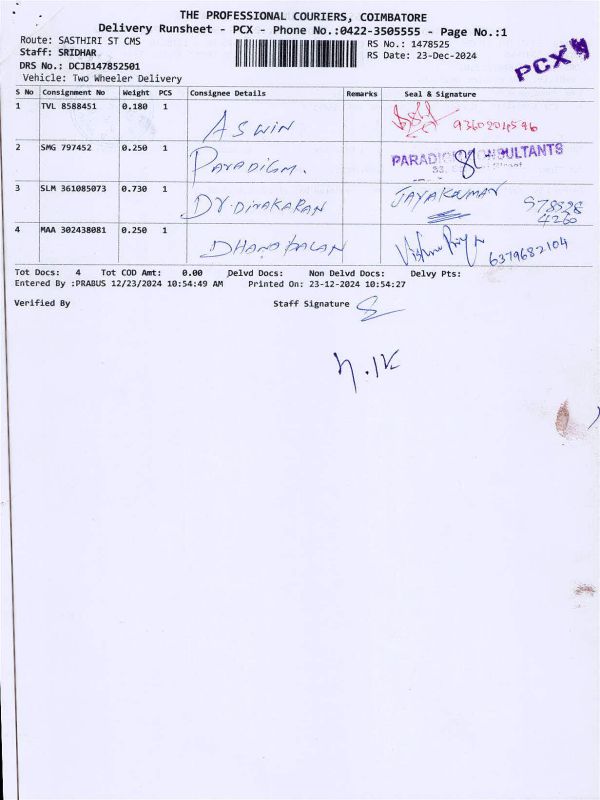 THE PROFESSIONAL COURIERS, COIMBATORE
Delivery Runsheet - PCX - Phone No.:0422-3505555 - Page No.:1
Route: SASTHIRI ST CMS RS No.: 1478525
Staff: SRIDHAR RS Date: 23-Dec-2024
DRS No.: DCJB147852501 PCX
Vehicle: Two Wheeler Delivery
S No Consignment No Weight PCS Consignee Details Remarks Seal & Signature
1 TVL 8588451 0.180 1 ASWIN 9360204596
2 SMG 797452 0.250 1 PARADIGM. PARADIGM CONSULTANTS
3 SLM 361085073 0.730 1 DR.DINAKARAN JAYAKUMAR
4 MAA 302438081 0.250 1 6379682104
Tot Docs: 4 Tot COD Amt: 0.00 Delvd Docs: Non Delvd Docs: Delvy Pts:
Entered By :PRABUS 12/23/2024 10:54:49 AM Printed On: 23-12-2024 10:54:27
Verified By Staff Signature